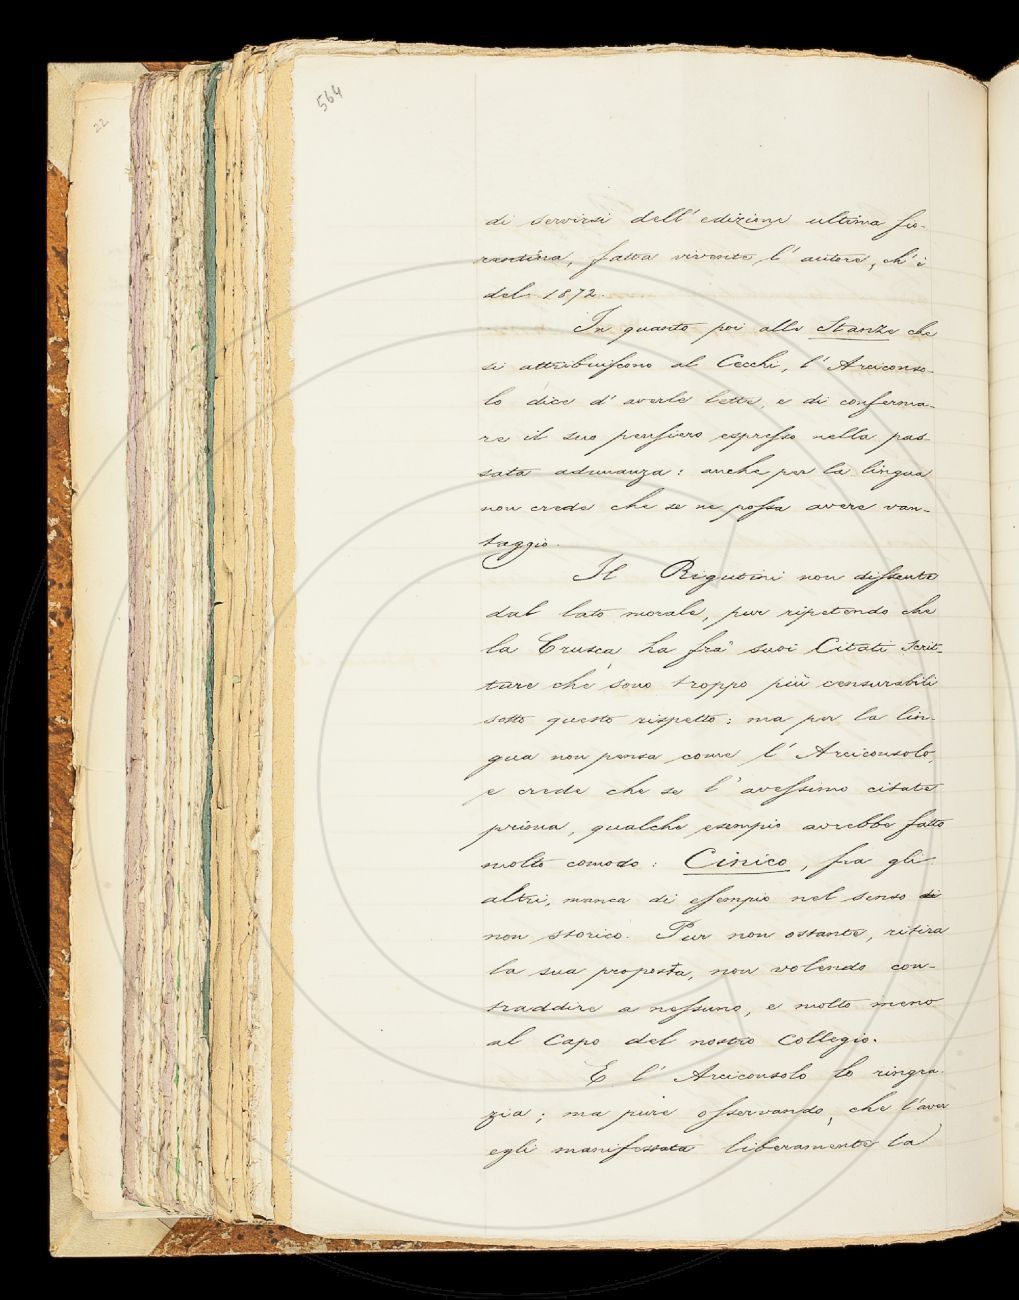 564
22
di servirsi dell' edizione ultima fio-
rentina, fatta vivente l' autore, ch' è
del 1872.
In quanto poi alle Stanze che
si attribuiscono al Cecchi, l' Arciconso-
lo dice d' averle lette, e di conferma-
re il suo pensiero espresso nella pas-
sata adunanza: anche per la lingua
non crede che se ne possa avere van-
taggio.
Il Rigutini non dissente
dal lato morale, pur ripetendo che
la Crusca ha fra' suoi Citati scrit-
ture che sono troppo più censurabili
sotto questo rispetto: ma per la lin-
gua non pensa come l' Arciconsolo,
e crede che se l' avessimo citate
prima, qualche esempio avrebbe fatto
molto comodo: Cinico, fra gli
altri, manca di esempio nel senso di
non storico. Pur non ostante, ritira
la sua proposta, non volendo con-
traddire a nessuno, e molto meno
al Capo del nostro Collegio.
E l' Arciconsolo lo ringra-
zia; ma pure osservando, che l'aver
egli manifestata liberamente la